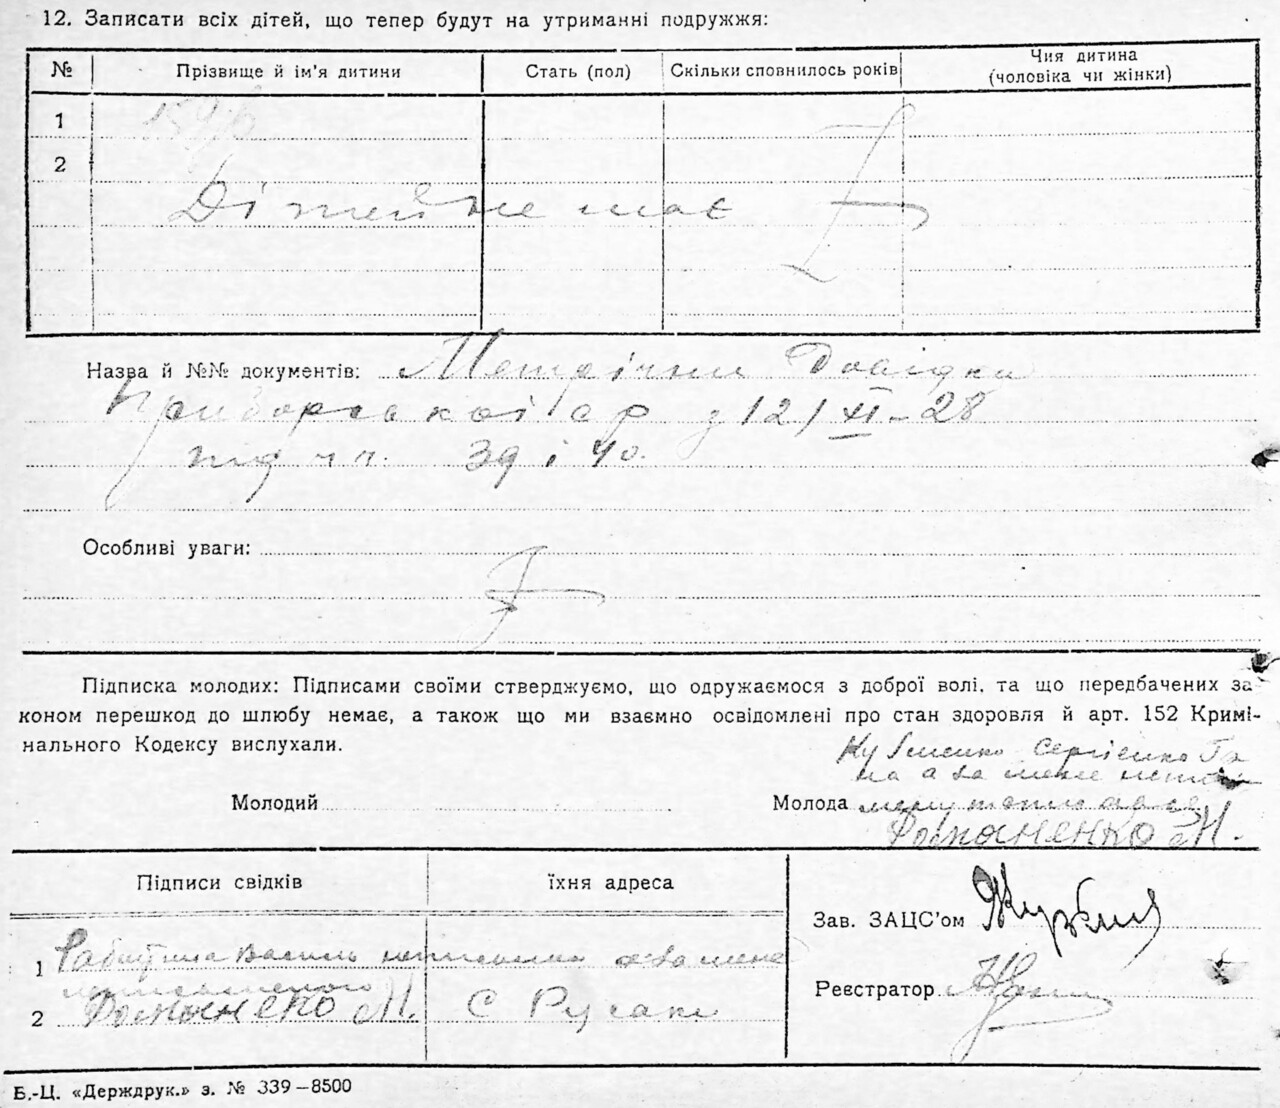 12. Записати всіх дітей, що тепер будут на утриманні подружжя:
№ Прізвище й ім'я дитини Стать (пол) Скільки сповнилось років Чия дитина (чоловіка чи жінки)
1
2
Дітей не має
Назва й №№ документів: Метрічни Довідки
Приборської с р з 12/XI-28
під ч ч. 39 і 40.
Особливі уваги:
Підписка молодих: Підписами своїми стверджуємо, що одружаємося з доброї волі, та що передбачених за
коном перешкод до шлюбу немає, а також що ми взаємно освідомлені про стан здоровля й арт. 152 Кримі-
нального Кодексу вислухали.
Сергієнко
на а за мене
Молодий Молода
Романенко М.
Підписи свідків їхня адреса
Зав. ЗАЦС'ом
1 Василь а за мене
Реєстратор
2 Романенко М. С Русаки
Б.-Ц. «Держдрук.» з. № 339—8500